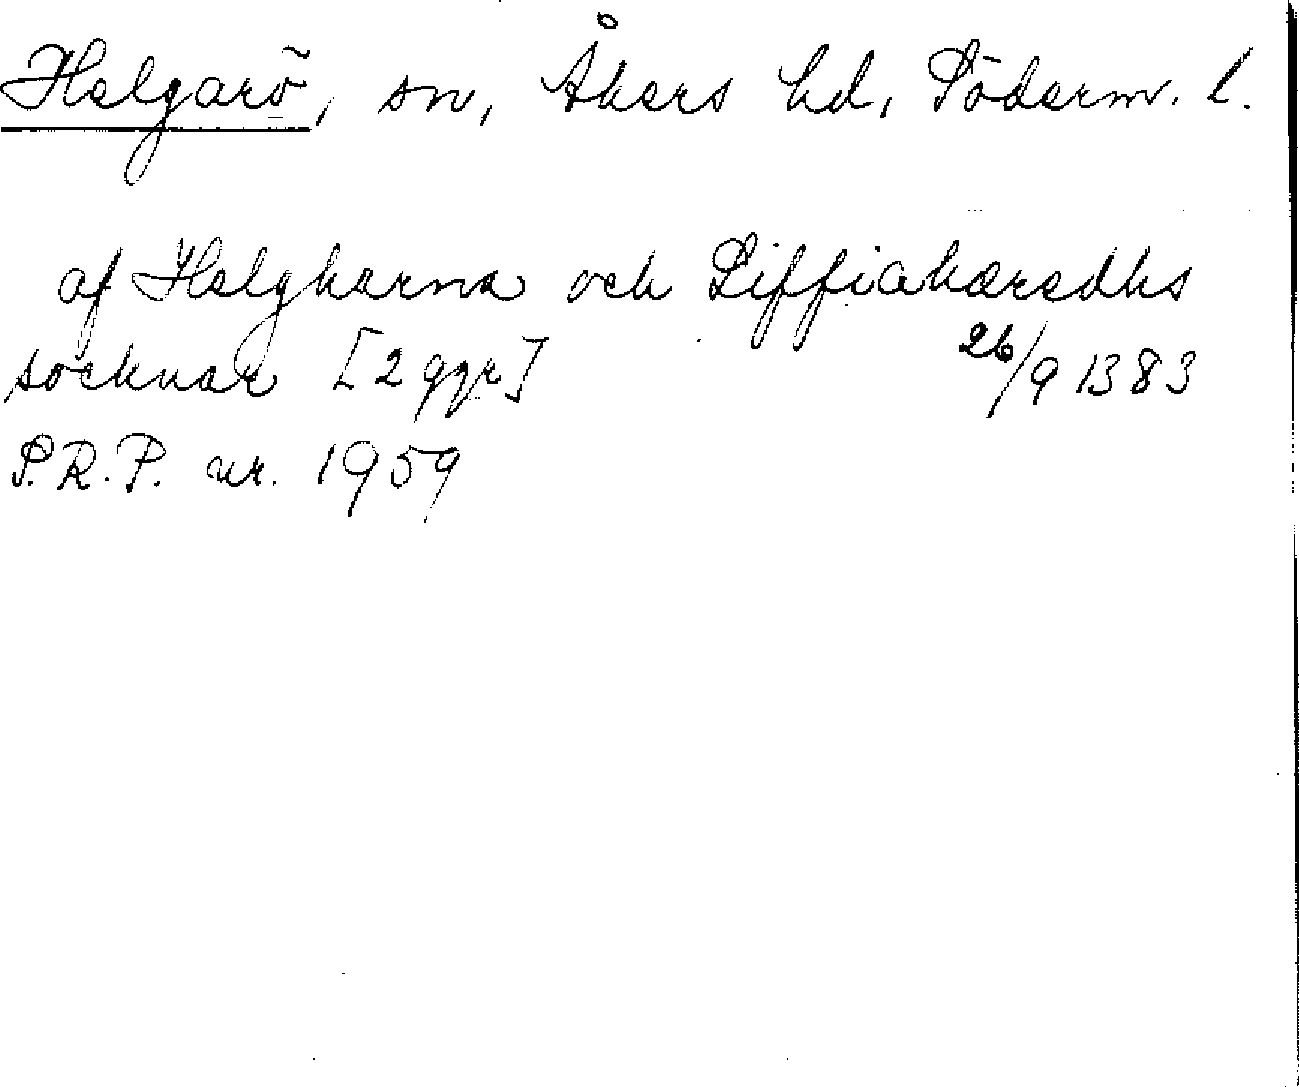 Helgarö, sn, Åkers hd, Söderm. l.
af Helgharna och Siffiahæredhs
socknar [2 ggr] 26/9 1383
S.R.P. nr. 1959